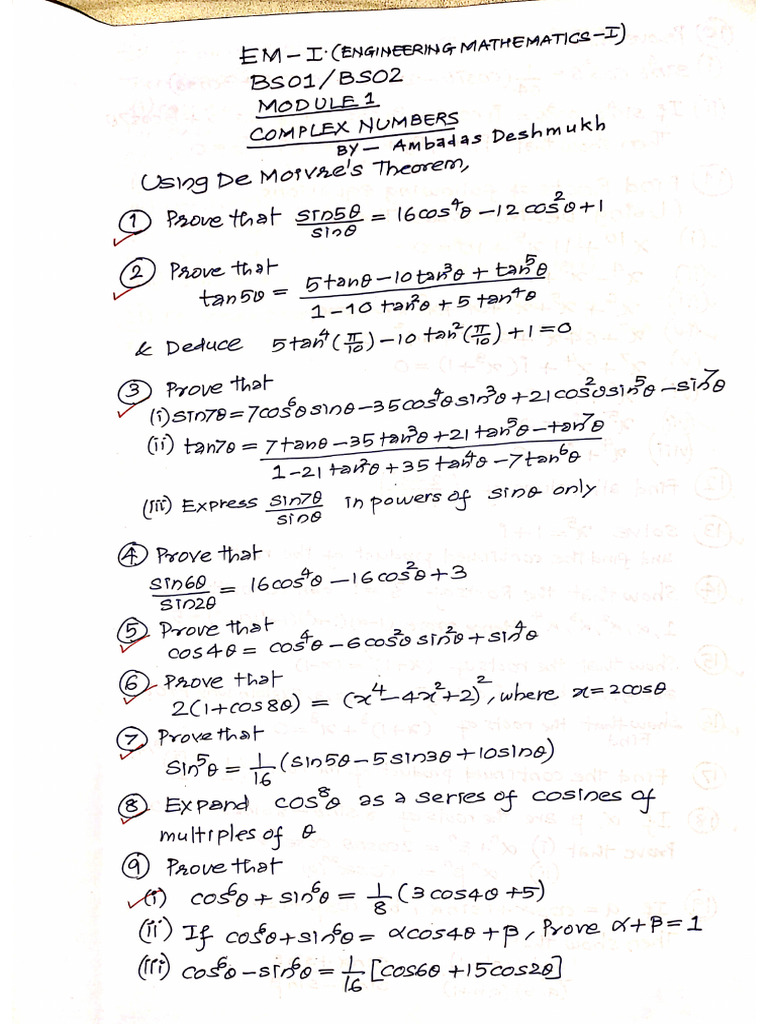 EM-I. (ENGINEERING MATHEMATICS-I)
BS01/BS02
MODULE 1
COMPLEX NUMBERS
BY - Ambadas Deshmukh
Using De Moivre's Theorem,
① Prove that sin5θ/sinθ = 16cos⁴θ - 12cos²θ + 1
② Prove that
tan5θ = (5tanθ - 10tan³θ + tan⁵θ)/(1 - 10tan²θ + 5tan⁴θ)
& Deduce 5tan⁴(π/10) - 10tan²(π/10) + 1 = 0
③ Prove that
(i) sin7θ = 7cos⁶θ sinθ - 35cos⁴θ sin³θ + 21cos²θ sin⁵θ - sin⁷θ
(ii) tan7θ = (7tanθ - 35tan³θ + 21tan⁵θ - tan⁷θ)/(1 - 21tan²θ + 35tan⁴θ - 7tan⁶θ)
(iii) Express sin7θ/sinθ in powers of sinθ only
④ Prove that
sin6θ/sin2θ = 16cos⁴θ - 16cos²θ + 3
⑤ Prove that
cos4θ = cos⁴θ - 6cos²θ sin²θ + sin⁴θ
⑥ Prove that
2(1+cos8θ) = (x⁴ - 4x² + 2)², where x = 2cosθ
⑦ Prove that
sin⁵θ = 1/16 (sin5θ - 5sin3θ + 10sinθ)
⑧ Expand cos⁸θ as a series of cosines of
multiples of θ
⑨ Prove that
(i) cos⁶θ + sin⁶θ = 1/8 (3cos4θ + 5)
(ii) If cos⁶θ + sin⁶θ = αcos4θ + β, Prove α + β = 1
(iii) cos⁶θ - sin⁶θ = 1/16 [cos6θ + 15cos2θ]